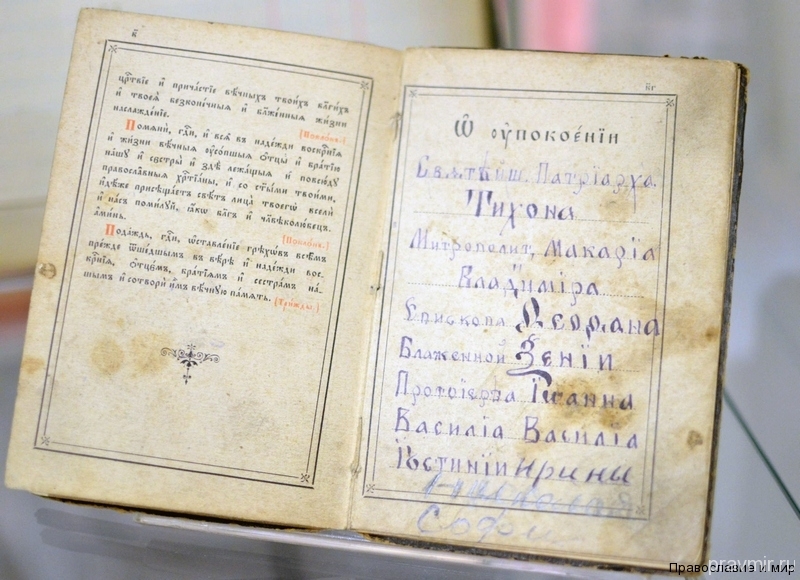 црⷭ҇твїе и҆ причⷭ҇тїе вѣ́чныхъ твои́хъ благи́хъ
и҆ твоеѧ̀ безконе́чныѧ и҆ блаже́нныѧ жи́зни
наслажде́нїе.
[Покло́нъ.]
Помѧнѝ, гдⷭ҇и, и҆ всѧ̑ въ наде́жди воскрⷭ҇нїѧ
и҆ жи́зни вѣ́чныѧ ᲂу҆со́пшыѧ ѻ҆тцы̀ и҆ бра́тїю
на́шу и҆ сєстры̀ и҆ здѣ̀ лежа́щыѧ и҆ повсю́ду
правосла́вныѧ хрⷭ҇тїа́ны, и҆ со ст҃ы́ми твои́ми,
и҆дѣ́же присѣща́етъ свѣ́тъ лица̀ твоегѡ̀ вселѝ
и҆ на́съ поми́луй, ꙗ҆́кѡ бл҃гъ и҆ чл҃вѣколю́бецъ.
а҆ми́нь.
[Покло́нъ.]
Пода́ждь, гдⷭ҇и, ѡ҆ставле́нїе грѣхѡ́въ всѣ́мъ
пре́жде ѿше́дшымъ въ вѣ́рѣ и҆ наде́жди вос-
крⷭ҇нїѧ, ѻ҆тцє́мъ, бра́тїѧмъ и҆ се́страмъ на́-
шымъ и҆ сотворѝ и҆̀мъ вѣ́чную па́мѧть.
[Три́жды.]
Ѡ҆ ᲂу҆покое́нїи
Святѣйш. Патріарха
Тихона
Митрополит. Макарія
Владиміра
Епископа
Блаженной Ѯеніи
Протоіерея Іоанна
Василія Василія
Іустиніи Ирины
Софи
pravmir.ru
Православие и мир